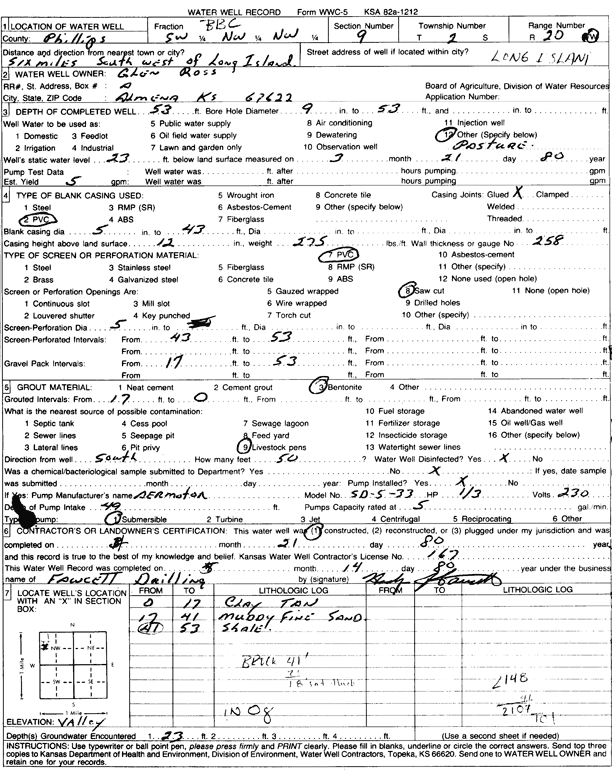 WATER WELL RECORD Form WWC-5 KSA 82a-1212
1 LOCATION OF WATER WELL Fraction BBC Section Number Township Number Range Number
County: Phillips SW ¼ NW ¼ NW ¼ 9 T 2 S R 20 W
Distance and direction from nearest town or city? Street address of well if located within city?
SIX miles South west of Long Island. LONG ISLAND
2 WATER WELL OWNER: Glen Ross
RR#, St. Address, Box # : A Board of Agriculture, Division of Water Resources
City, State, ZIP Code : ALMENA KS 67622 Application Number:
3 DEPTH OF COMPLETED WELL 53 ft. Bore Hole Diameter 9 in. to 53 ft., and in. to ft.
Well Water to be used as: 5 Public water supply 8 Air conditioning 11 Injection well
1 Domestic 3 Feedlot 6 Oil field water supply 9 Dewatering 12 Other (Specify below)
2 Irrigation 4 Industrial 7 Lawn and garden only 10 Observation well Posture.
Well's static water level 23 ft. below land surface measured on 3 month 21 day 80 year
Pump Test Data : Well water was ft. after hours pumping gpm
Est. Yield 5 gpm: Well water was ft. after hours pumping gpm
4 TYPE OF BLANK CASING USED: 5 Wrought iron 8 Concrete tile Casing Joints: Glued X Clamped
1 Steel 3 RMP (SR) 6 Asbestos-Cement 9 Other (specify below) Welded
2 PVC 4 ABS 7 Fiberglass Threaded
Blank casing dia 5 in. to 43 ft., Dia in. to ft., Dia in. to ft.
Casing height above land surface 12 in., weight 275 lbs./ft. Wall thickness or gauge No 258
TYPE OF SCREEN OR PERFORATION MATERIAL: 7 PVC 10 Asbestos-cement
1 Steel 3 Stainless steel 5 Fiberglass 8 RMP (SR) 11 Other (specify)
2 Brass 4 Galvanized steel 6 Concrete tile 9 ABS 12 None used (open hole)
Screen or Perforation Openings Are: 5 Gauzed wrapped 8 Saw cut 11 None (open hole)
1 Continuous slot 3 Mill slot 6 Wire wrapped 9 Drilled holes
2 Louvered shutter 4 Key punched 7 Torch cut 10 Other (specify)
Screen-Perforation Dia 5 in. to ft., Dia in. to ft., Dia in. to ft.
Screen-Perforated Intervals: From 43 ft. to 53 ft., From ft. to ft.
From ft. to ft., From ft. to ft.
Gravel Pack Intervals: From 17 ft. to 53 ft., From ft. to ft.
From ft. to ft., From ft. to ft.
5 GROUT MATERIAL: 1 Neat cement 2 Cement grout 3 Bentonite 4 Other
Grouted Intervals: From 17 ft. to 0 ft., From ft. to ft., From ft. to ft.
What is the nearest source of possible contamination: 10 Fuel storage 14 Abandoned water well
1 Septic tank 4 Cess pool 7 Sewage lagoon 11 Fertilizer storage 15 Oil well/Gas well
2 Sewer lines 5 Seepage pit 8 Feed yard 12 Insecticide storage 16 Other (specify below)
3 Lateral lines 6 Pit privy 9 Livestock pens 13 Watertight sewer lines
Direction from well South How many feet 50 ? Water Well Disinfected? Yes X No
Was a chemical/bacteriological sample submitted to Department? Yes No X : If yes, date sample
was submitted month day year: Pump Installed? Yes X No
If Yes: Pump Manufacturer's name AERMOTOR Model No. SD-5-33 HP 1/3 Volts 230
Depth of Pump Intake 49 ft. Pumps Capacity rated at 5 gal./min.
Type of pump: 1 Submersible 2 Turbine 3 Jet 4 Centrifugal 5 Reciprocating 6 Other
6 CONTRACTOR'S OR LANDOWNER'S CERTIFICATION: This water well was (1) constructed, (2) reconstructed, or (3) plugged under my jurisdiction and was
completed on month 21 day 80 year
and this record is true to the best of my knowledge and belief. Kansas Water Well Contractor's License No. 167
This Water Well Record was completed on month 14 day 80 year under the business
name of FAWCETT Drilling by (signature)
7 LOCATE WELL'S LOCATION WITH AN "X" IN SECTION BOX: FROM TO LITHOLOGIC LOG FROM TO LITHOLOGIC LOG
0 17 CLAY TAN
17 41 MUDDY FINE SAND.
41 53 Shale.
N
NW NE
W E
SW SE
S
1 Mile
1 Mile
BRCK 41'
2148
41
2107
IN 08
ELEVATION: Valley
Depth(s) Groundwater Encountered 1. 23 ft. 2. ft. 3. ft. 4. ft. (Use a second sheet if needed)
INSTRUCTIONS: Use typewriter or ball point pen, please press firmly and PRINT clearly. Please fill in blanks, underline or circle the correct answers. Send top three
copies to Kansas Department of Health and Environment, Division of Environment, Water Well Contractors, Topeka, KS 66620. Send one to WATER WELL OWNER and
retain one for your records.